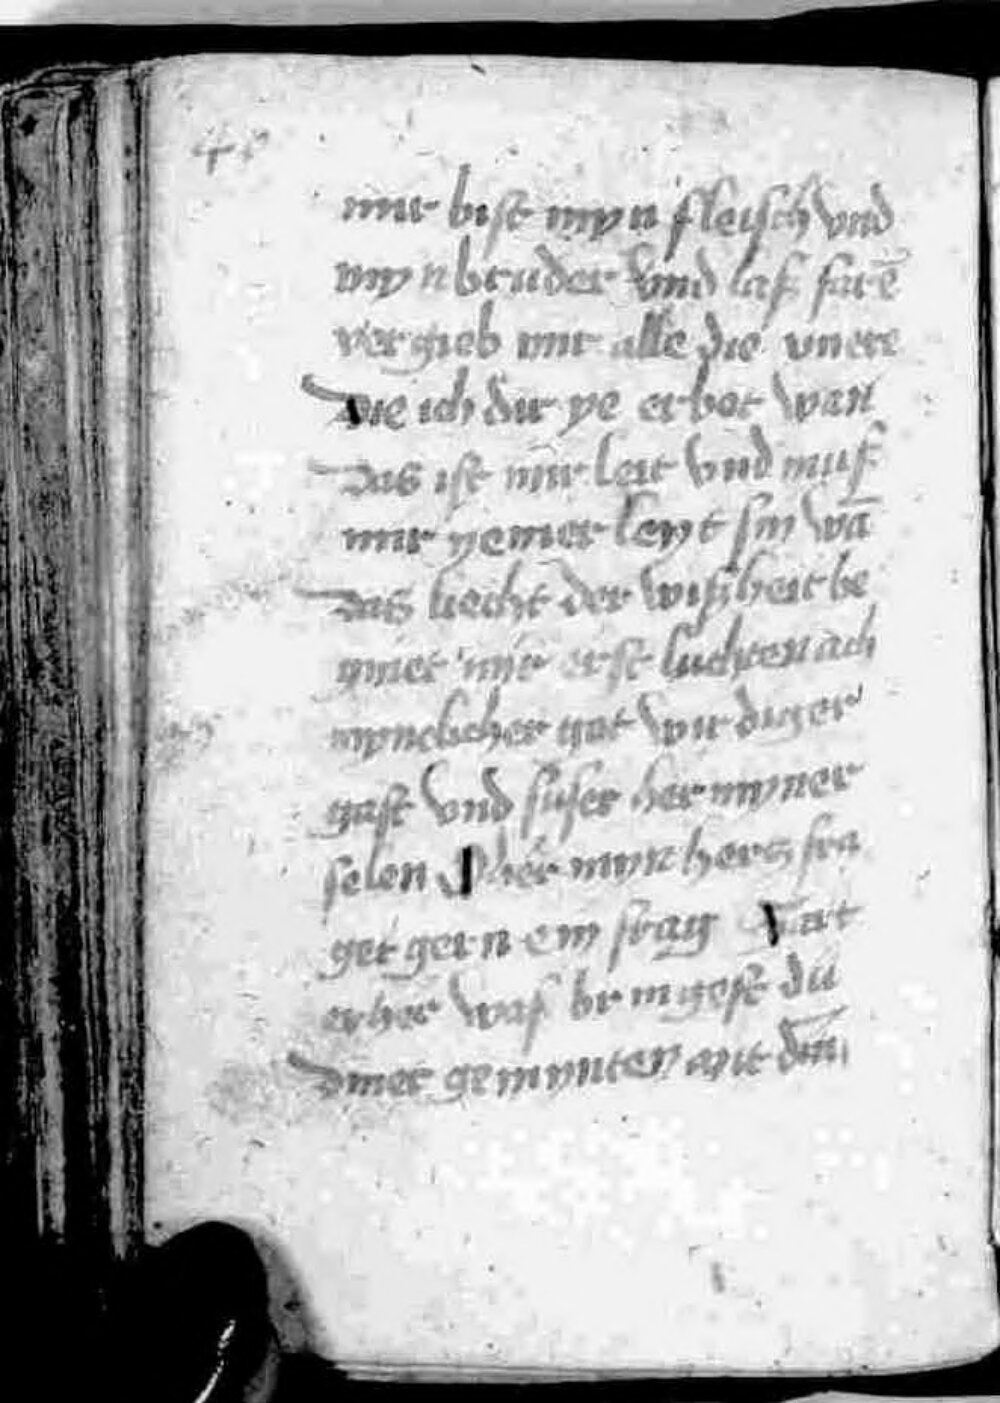 mir bist myn fleisch vnd
myn bruder vnd las farē
vergieb mir alle die vnere
Die ich dir ye erbot wan
Das ist mir leit vnd muß
mir yemer leyt sin wā
Das liecht der wißheit be
gniet mir erst luchten ach
mynclicher got wirdiger
gast vnd suser her myner
selen O her myn hertz fra
get gern ein frag Zart
er her waß bringest du
Diner gemynten mit dim